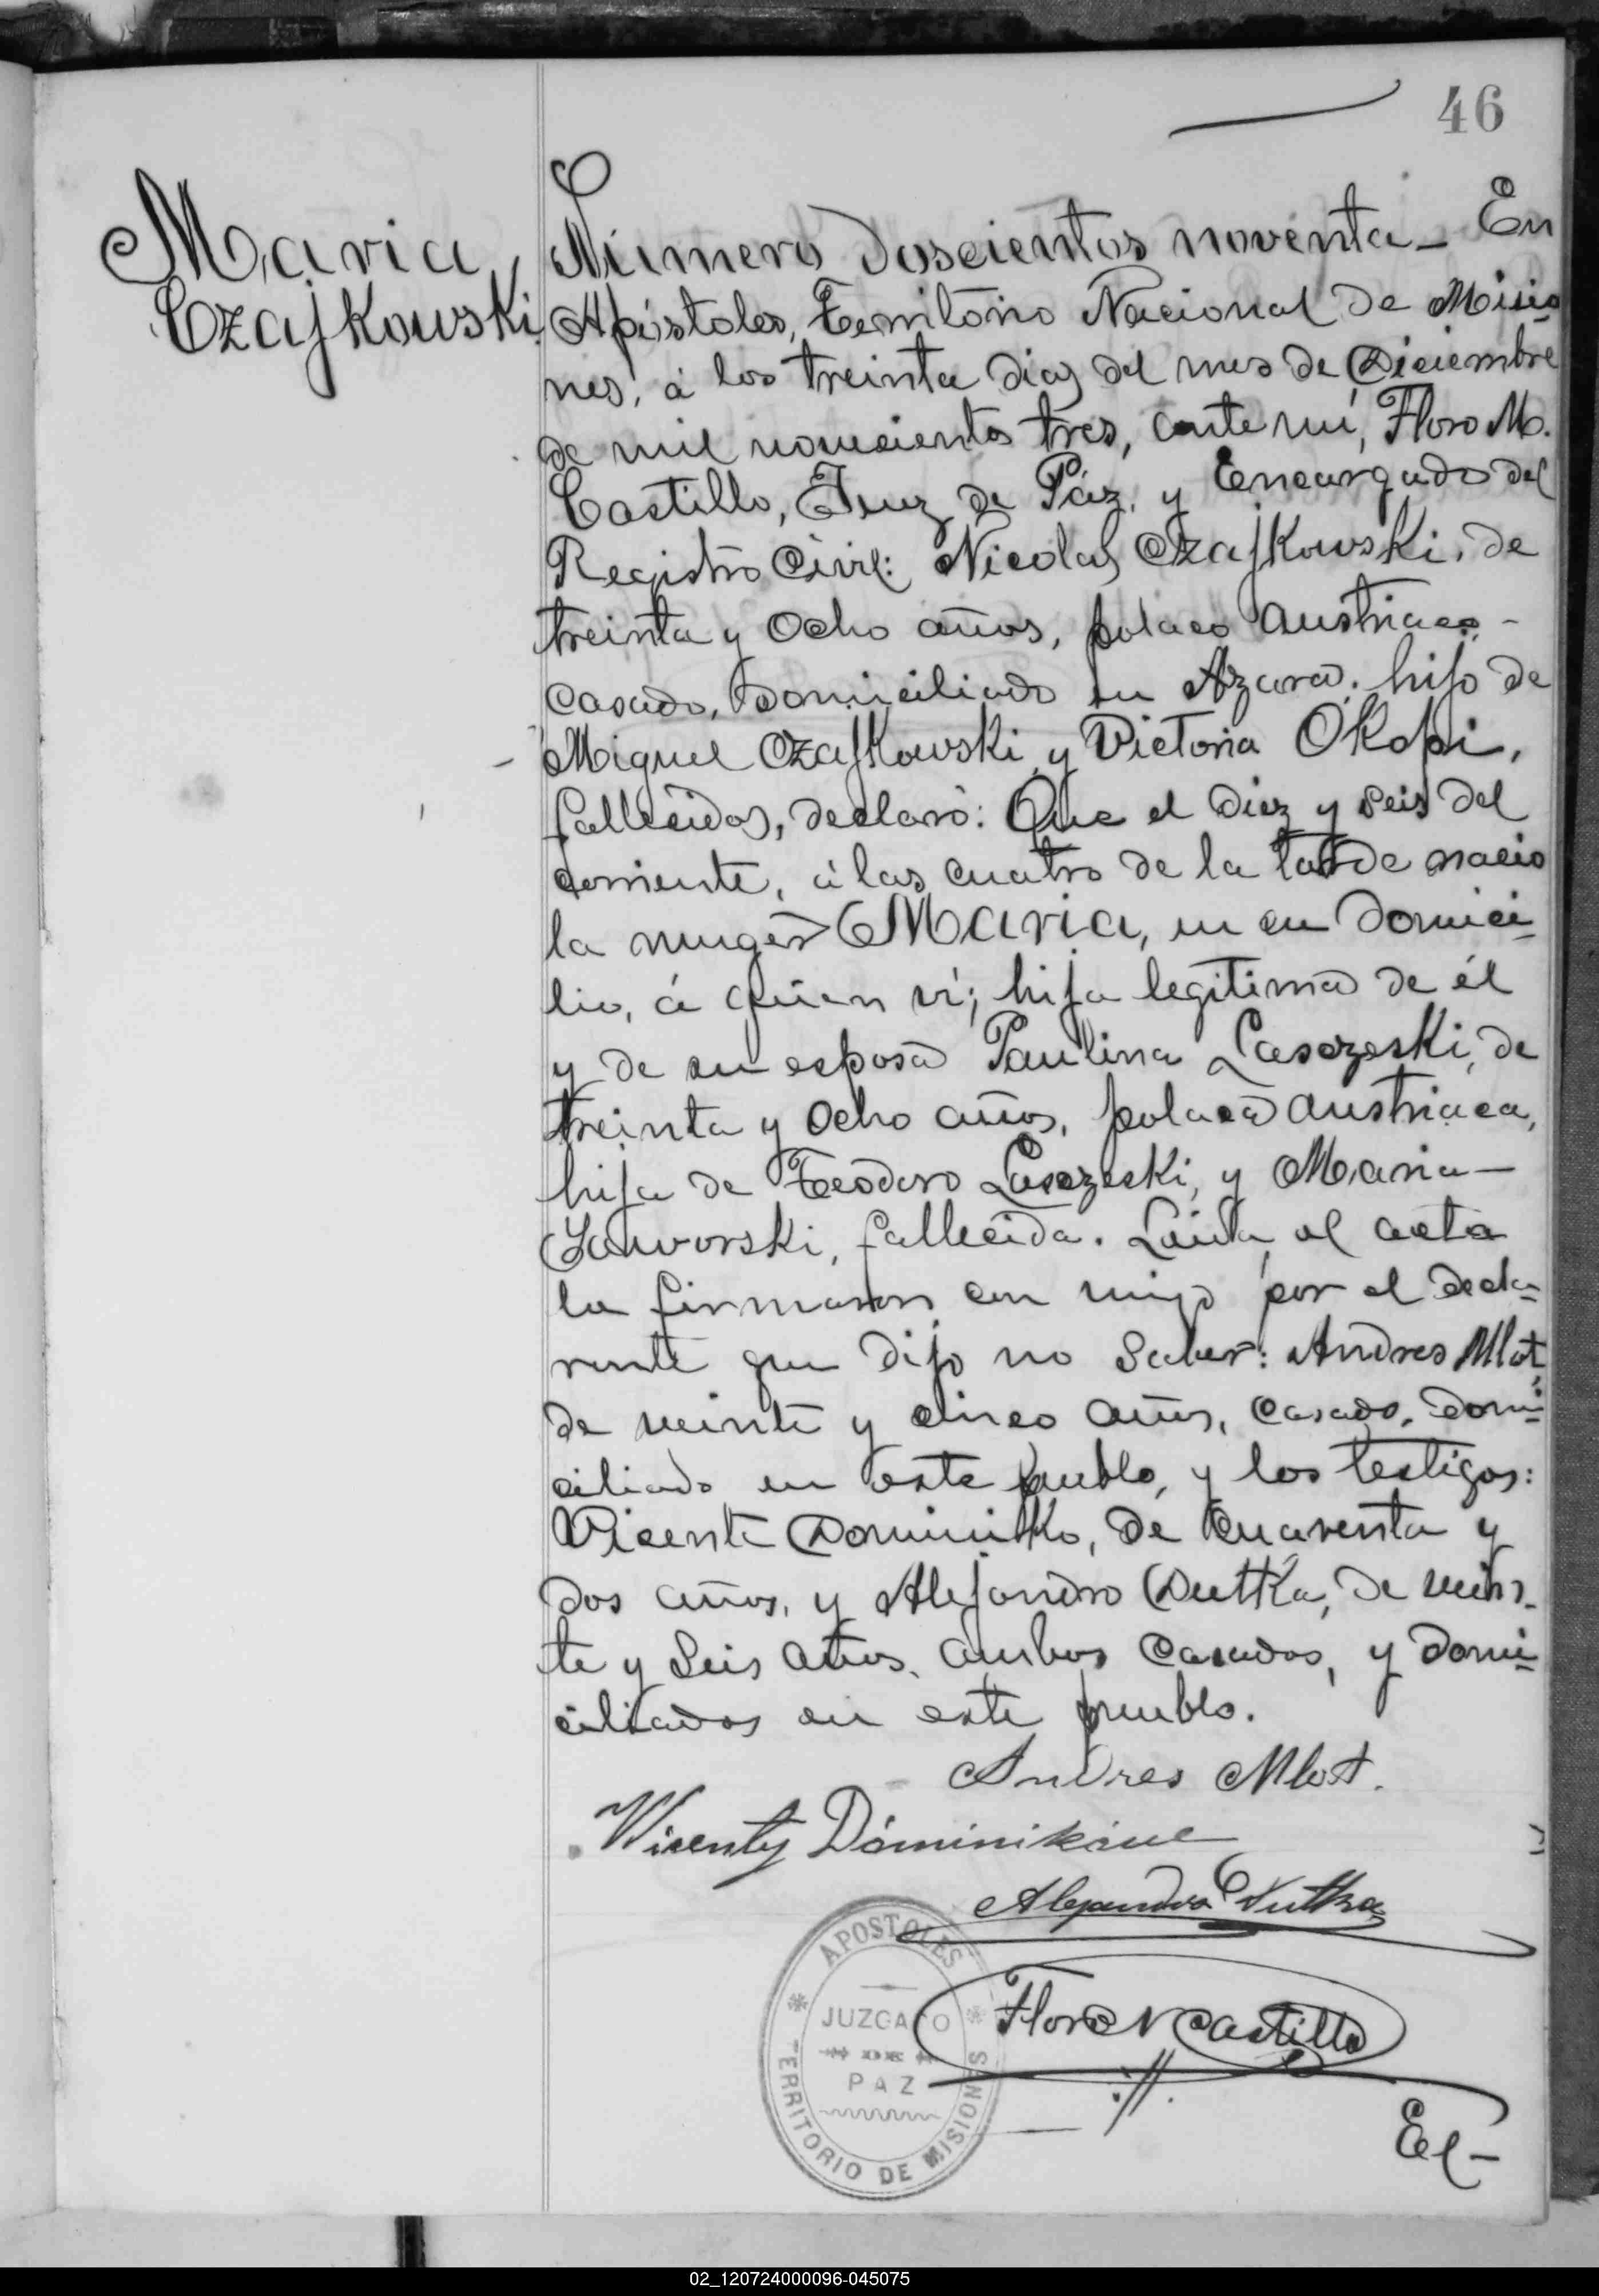 46
Maria
Czajkowski
Número doscientos noventa_ En
Apóstoles, Territorio Nacional de Misio=
nes, á los treinta dias del mes de Diciembre
de mil novecientos tres, ante mí, Floro M.
Castillo, Juez de Páz, y Encargado del
Registro Civil: Nicolas Czajkowski, de
treinta y ocho años, polaco austriaco -
casado, domiciliado en Azara, hijo de
Miguel Czajkowski y Victoria Okopi,
fallecidos, declaró: Que el diez y seis del
corriente, á las cuatro de la tarde nacio
la muger Maria, en su domici=
lio, á quien ví; hija legitima de él
y de su esposa Paulina Lasczeski, de
treinta y ocho años, polaca austriaca,
hija de Teodoro Lasczeski, y Maria -
Jaworski, fallecida. Leida el acta
la firmaron con migo por el decla=
rante que dijo no saber: Andres Mlot,
de veinte y cinco años, casado, domi=
ciliado en este pueblo, y los testigos:
Vicente Dominikko, de cuarenta y
dos años, y Alejandro Dutka, de vein-
te y seis años, ambos casados, y domi=
ciliados en este pueblo.
Andres Mlot.
Wicenty Dominikiue
Alejandro Dutka
Floro M Castillo
APOSTOLES
JUZGADO
DE
PAZ
TERRITORIO DE MISIONES
El-
02_120724000096-045075